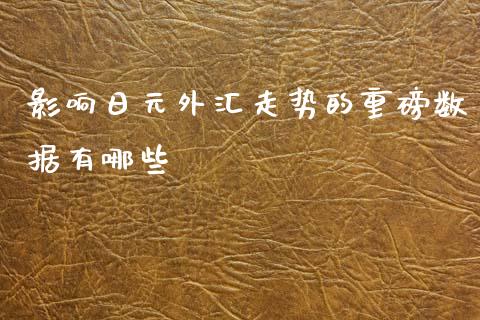 影响日元外汇走势的重磅数
据有哪些